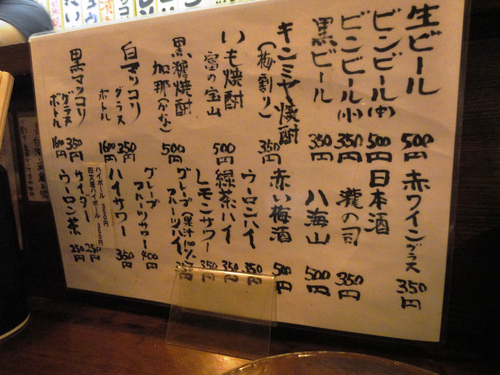 生ビール 500円
ビンビール(中) 500円
ビンビール(小) 350円
黒ビール 350円
キンミヤ焼酎
(梅割り) 350円
いも焼酎
富の宝山 500円
黒糖焼酎
加那(かな) 500円
白マッコリ
グラス 350円
ボトル
黒マッコリ
グラス 350円
ボトル
赤ワイングラス 350円
日本酒
瀧の司 350円
八海山 500円
赤い梅酒 500円
ウーロンハイ 350円
緑茶ハイ 350円
レモンサワー 350円
グレープフルーツハイ(果汁100%)
グレープフルーツサワー 400円
ハイサワー 350円
ハイボール 350円
サイダー 250円
ウーロン茶 250円